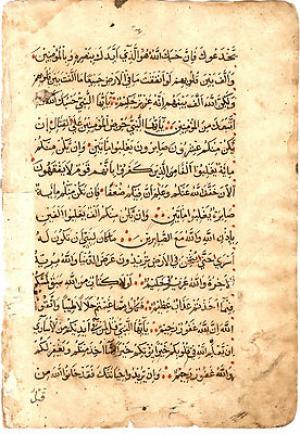 يَخْدَعُوكَ فَإِنَّ حَسْبَكَ اللَّهُ هُوَ الَّذِي أَيَّدَكَ بِنَصْرِهِ وَبِالْمُؤْمِنِينَ
وَأَلَّفَ بَيْنَ قُلُوبِهِمْ لَوْ أَنْفَقْتَ مَا فِي الْأَرْضِ جَمِيعًا مَا أَلَّفْتَ بَيْنَ قُلُوبِهِمْ
وَلَكِنَّ اللَّهَ أَلَّفَ بَيْنَهُمْ إِنَّهُ عَزِيزٌ حَكِيمٌ يَا أَيُّهَا النَّبِيُّ حَسْبُكَ اللَّهُ وَمَنِ
اتَّبَعَكَ مِنَ الْمُؤْمِنِينَ يَا أَيُّهَا النَّبِيُّ حَرِّضِ الْمُؤْمِنِينَ عَلَى الْقِتَالِ إِنْ
يَكُنْ مِنْكُمْ عِشْرُونَ صَابِرُونَ يَغْلِبُوا مِائَتَيْنِ وَإِنْ يَكُنْ مِنْكُمْ
مِائَةٌ يَغْلِبُوا أَلْفًا مِنَ الَّذِينَ كَفَرُوا بِأَنَّهُمْ قَوْمٌ لَا يَفْقَهُونَ
الْآنَ خَفَّفَ اللَّهُ عَنْكُمْ وَعَلِمَ أَنَّ فِيكُمْ ضَعْفًا فَإِنْ يَكُنْ مِنْكُمْ مِائَةٌ
صَابِرَةٌ يَغْلِبُوا مِائَتَيْنِ وَإِنْ يَكُنْ مِنْكُمْ أَلْفٌ يَغْلِبُوا أَلْفَيْنِ
بِإِذْنِ اللَّهِ وَاللَّهُ مَعَ الصَّابِرِينَ مَا كَانَ لِنَبِيٍّ أَنْ يَكُونَ لَهُ
أَسْرَى حَتَّى يُثْخِنَ فِي الْأَرْضِ تُرِيدُونَ عَرَضَ الدُّنْيَا وَاللَّهُ يُرِيدُ
الْآخِرَةَ وَاللَّهُ عَزِيزٌ حَكِيمٌ لَوْلَا كِتَابٌ مِنَ اللَّهِ سَبَقَ لَمَسَّكُمْ
فِيمَا أَخَذْتُمْ عَذَابٌ عَظِيمٌ فَكُلُوا مِمَّا غَنِمْتُمْ حَلَالًا طَيِّبًا وَاتَّقُوا
اللَّهَ إِنَّ اللَّهَ غَفُورٌ رَحِيمٌ يَا أَيُّهَا النَّبِيُّ قُلْ لِمَنْ فِي أَيْدِيكُمْ مِنَ الْأَسْرَى
إِنْ يَعْلَمِ اللَّهُ فِي قُلُوبِكُمْ خَيْرًا يُؤْتِكُمْ خَيْرًا مِمَّا أُخِذَ مِنْكُمْ وَيَغْفِرْ لَكُمْ
وَاللَّهُ غَفُورٌ رَحِيمٌ وَإِنْ يُرِيدُوا خِيَانَتَكَ فَقَدْ خَانُوا اللَّهَ مِنْ
قبل